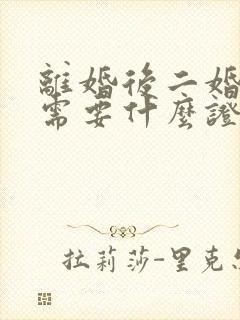 離婚後二婚
需要什麼證
拉莉莎-里克